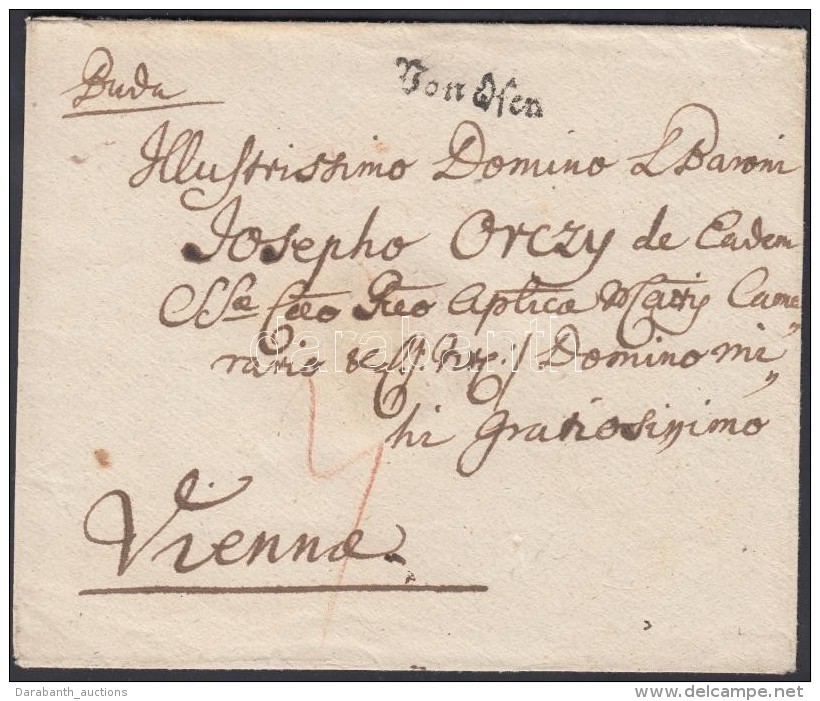 Buda
Von Ofen
Illustrissimo Domino L Baroni
Josepho Orczy de Eadem
SSæ Cæo Reo Aplicæ Mattis Came„
rario Domino mi„
hi gratiosissimo
Viennæ
darabanth
Darabanth_auctions
www.delcampe.net